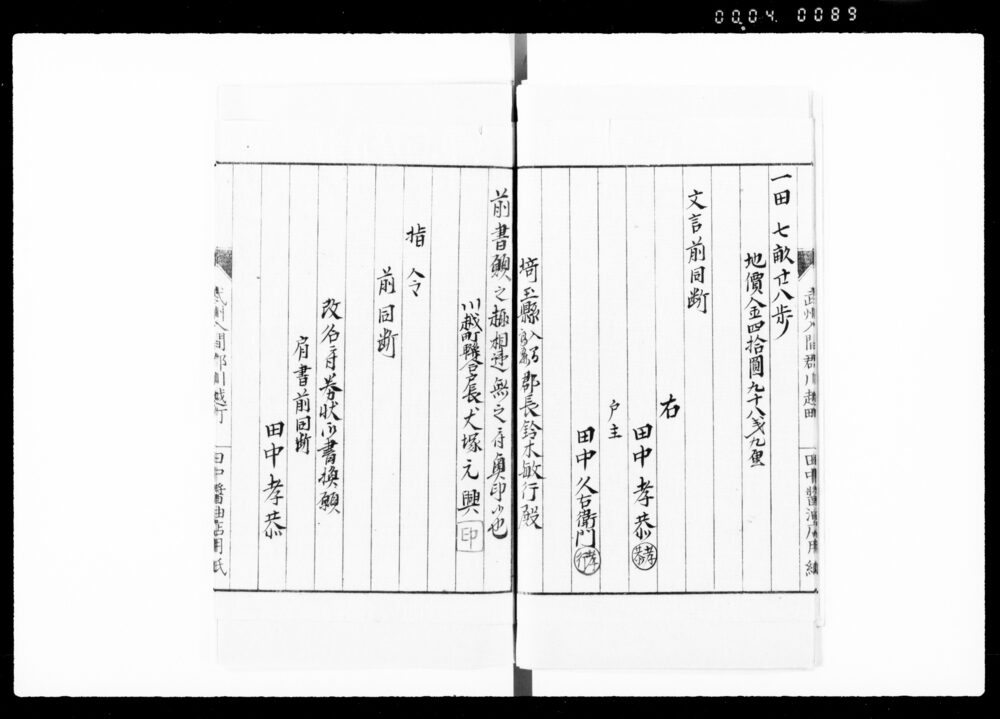 00.04. 0089
一田 七畝廿八歩
地價金四拾圓九十八戔九厘
文言前同断
右
田中孝恭 孝恭
戸主
田中久右衛門 孝行
埼玉縣入間高麗郡長鈴木敏行殿
前書願之趣相違無之ニ付奥印候也
川越町聯合戸長犬塚元興 印
指令
前同断
改名ニ付券状御書換願
肩書前同断
田中孝恭
武州入間郡川越町
田中醤油店用紙